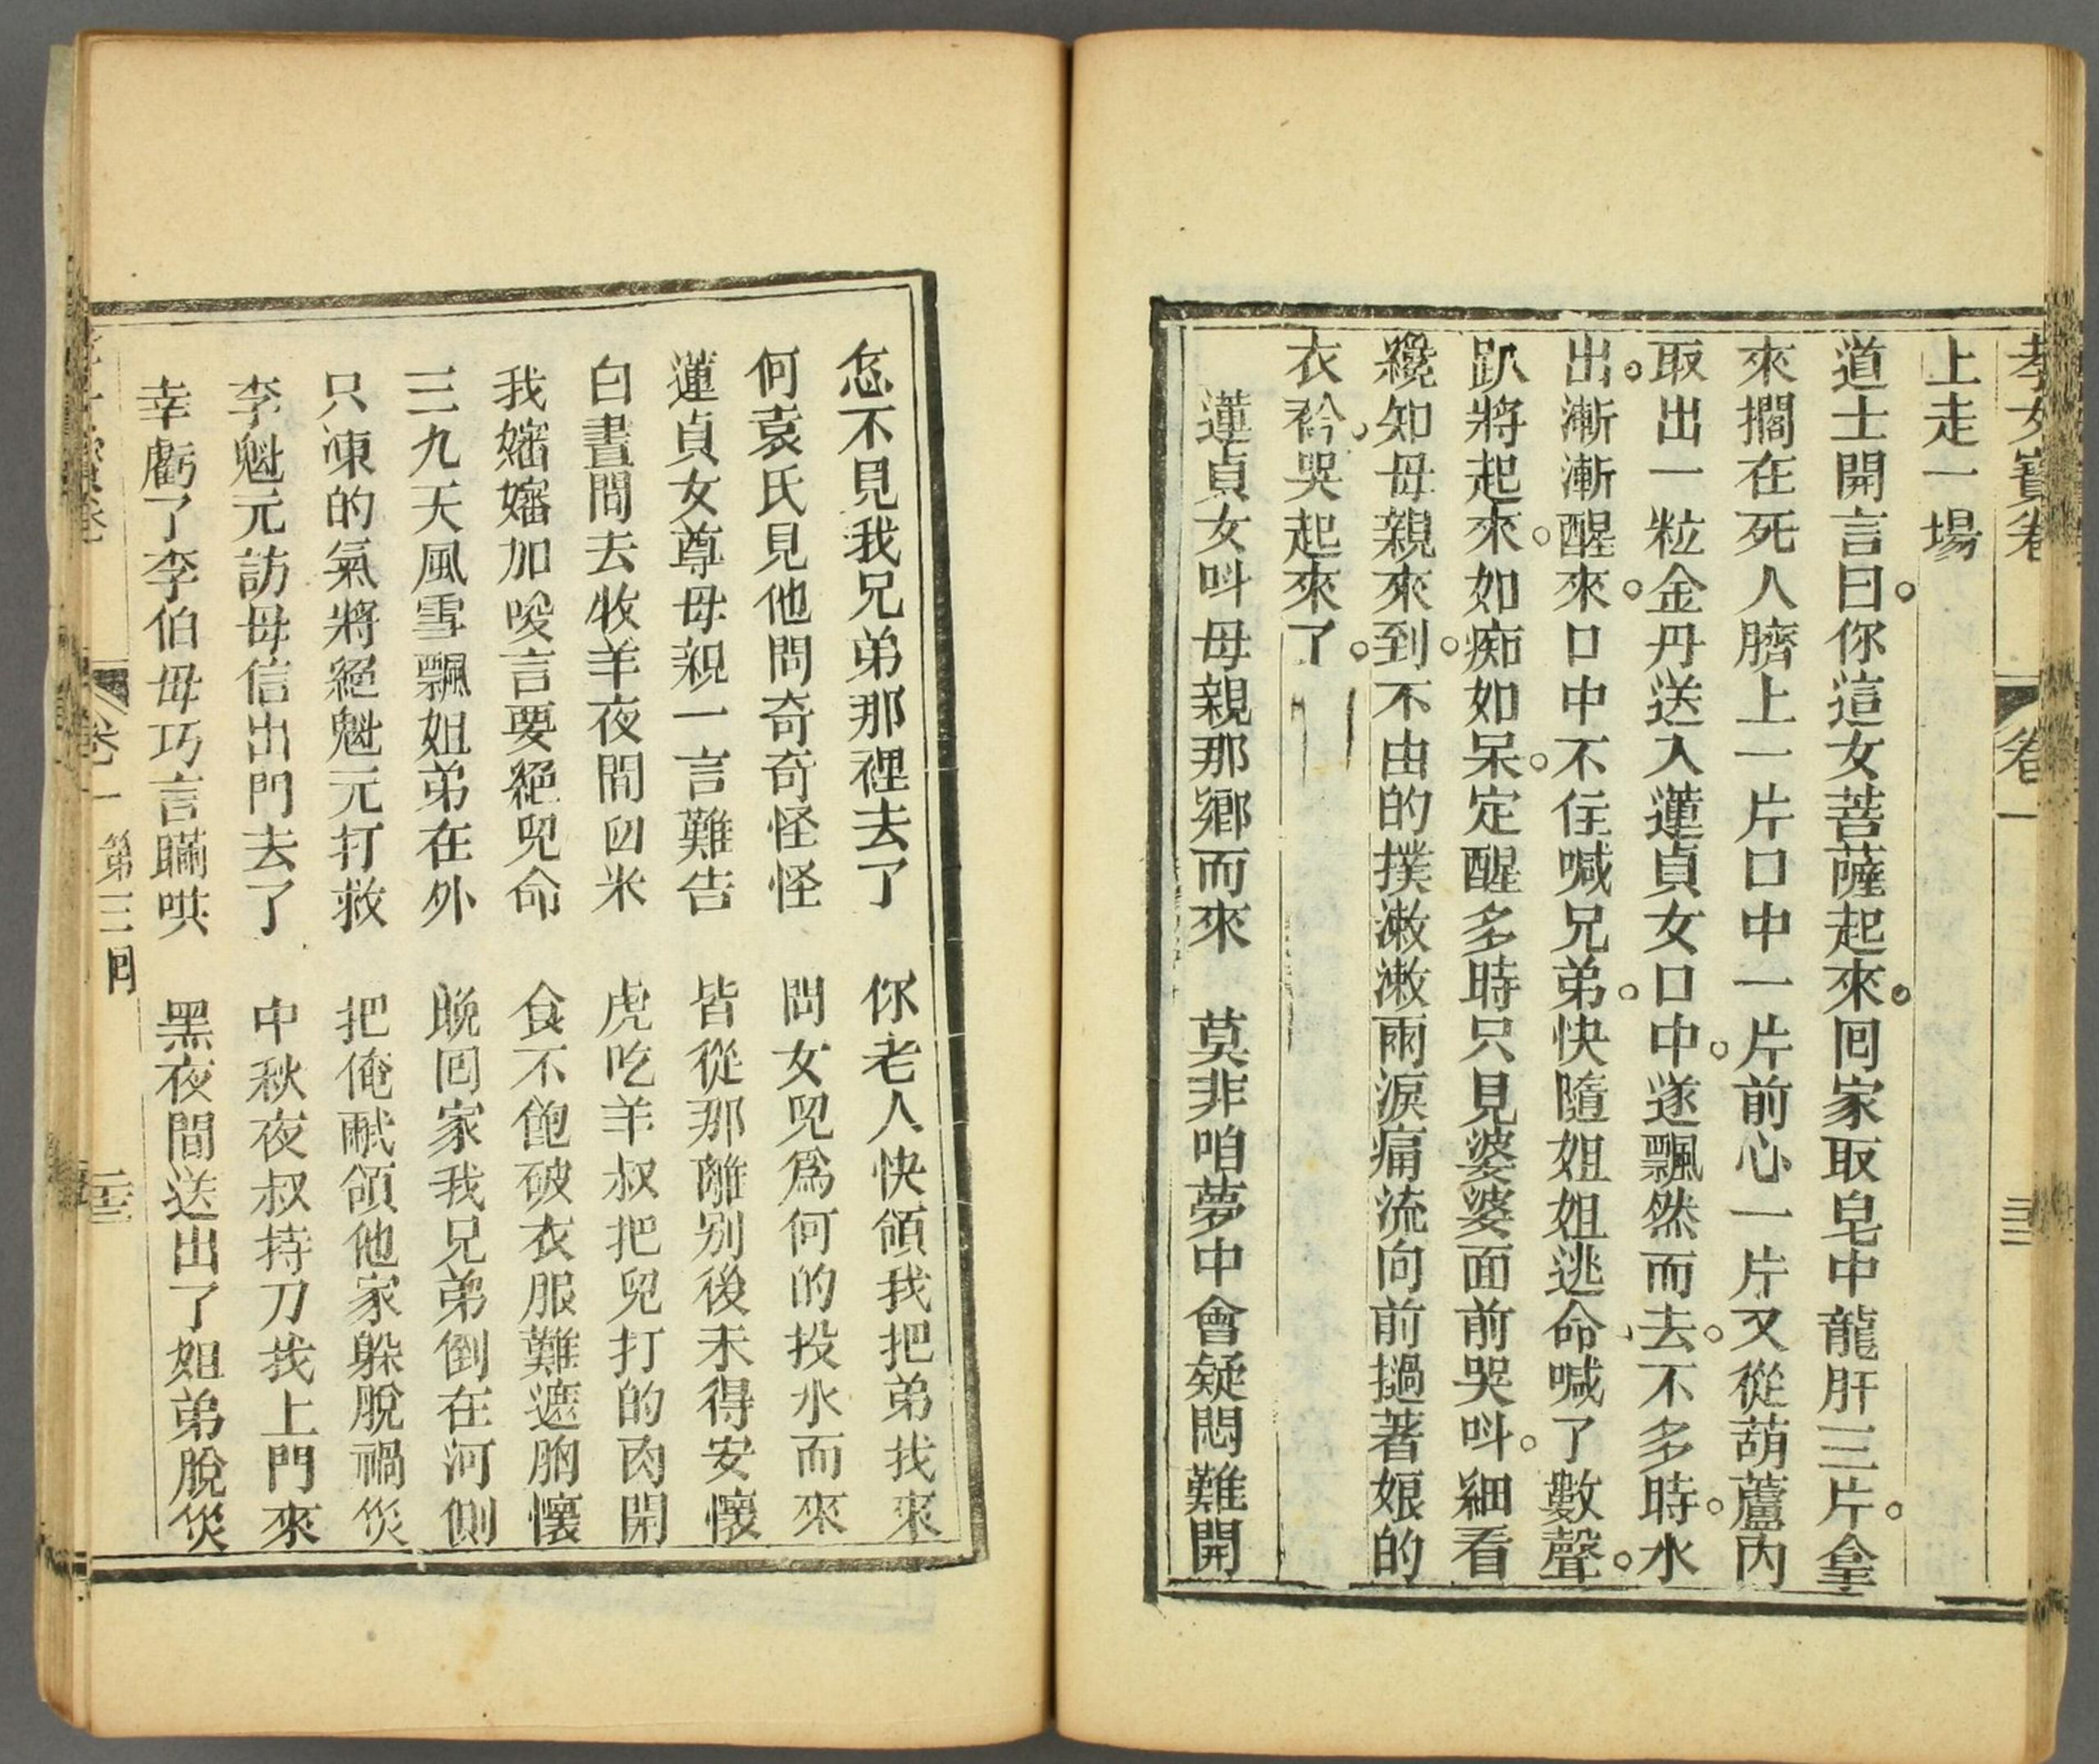 孝女寶卷 卷一
上走一場
道士開言曰。你這女菩薩起來。囘家取皂中龍肝三片。拿
來擱在死人臍上一片口中一片前心一片又從葫蘆內
取出一粒金丹送入蓮貞女口中。遂飄然而去。不多時。水
出。漸漸醒來。口中不住喊兄弟。快隨姐姐逃命喊了數聲。
趴將起來。如痴如呆。定醒多時只見婆婆面前哭呌。細看
纔知母親來到。不由的撲漱漱雨淚痛流向前撾著娘的
衣衿。哭起來了。
蓮貞女呌母親那鄉而來 莫非咱夢中會疑悶難開
怎不見我兄弟那裡去了 你老人快領我把弟找來
何袁氏見他問奇奇怪怪 問女兒爲何的投水而來
蓮貞女尊母親一言難告 皆從那離別後未得安懷
白晝間去牧羊夜間囟米 虎吃羊叔把兒打的肉開
我嬸嬸加唆言要絕兒命 食不飽破衣服難遮胸懷
三九天風雪飄姐弟在外 晚囘家我兄弟倒在河側
只凍的氣將絕魁元打救 把俺貳領他家躱脫禍災
李魁元訪母信出門去了 中秋夜叔持刀找上門來
幸虧了李伯母巧言瞞哄 黑夜間送出了姐弟脫災
卷一 第三囘